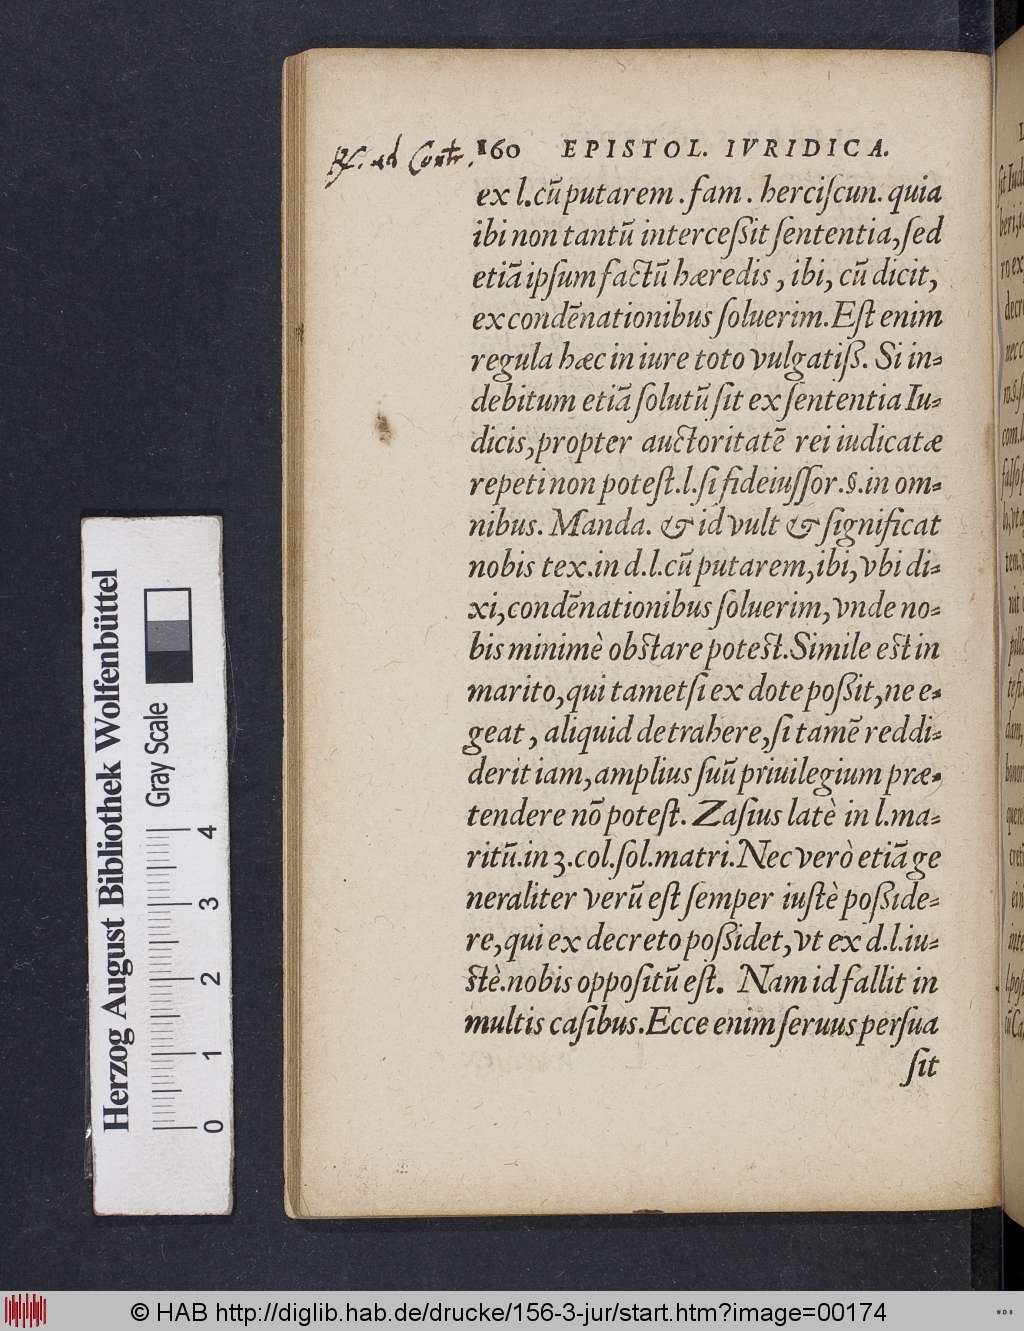 160 EPISTOL. IVRIDICA.
ex l.cũ putarem. fam. herciſcun. quia
ibi non tantũ interceßit ſententia, ſed
etiã ipſum factũ hæredis, ibi, cũ dicit,
ex condẽnationibus ſoluerim. Eſt enim
regula hæc in iure toto vulgatiß. Si in-
debitum etiã ſolutũ ſit ex ſententia Iu-
dicis, propter auctoritatẽ rei iudicatæ
repeti non poteſt. l. ſi fideiuſſor. §. in om-
nibus. Manda. & id vult & ſignificat
nobis tex. in d.l.cũ putarem, ibi, vbi di-
xi, condẽnationibus ſoluerim, vnde no-
bis minimè obſtare poteſt. Simile eſt in
marito, qui tametſi ex dote poßit, ne e-
geat, aliquid detrahere, ſi tamẽ reddi-
derit iam, amplius ſuũ priuilegium præ-
tendere nõ poteſt. Zaſius latè in l. ma-
ritũ. in 3. col. ſol. matri. Nec verò etiã ge
neraliter verũ eſt ſemper iuſtè poßide-
re, qui ex decreto poßidet, vt ex d.l. iu-
ſtè. nobis oppoſitũ eſt. Nam id fallit in
multis caſibus. Ecce enim ſeruus perſua
ſit
Herzog August Bibliothek Wolfenbüttel
Gray Scale
0 1 2 3 4
© HAB http://diglib.hab.de/drucke/156-3-jur/start.htm?image=00174